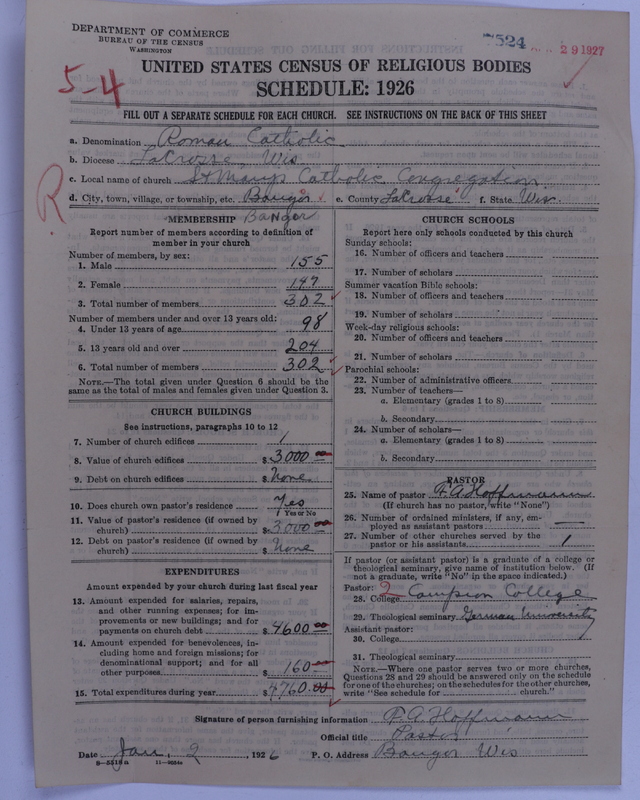 DEPARTMENT OF COMMERCE
BUREAU OF THE CENSUS
WASHINGTON
7524
29 1927
5-4
UNITED STATES CENSUS OF RELIGIOUS BODIES
SCHEDULE: 1926
FILL OUT A SEPARATE SCHEDULE FOR EACH CHURCH. SEE INSTRUCTIONS ON THE BACK OF THIS SHEET
a. Denomination Roman Catholic
b. Diocese LaCrosse, Wis
c. Local name of church St Marys Catholic Congregation
R
d. City, town, village, or township, etc. Bangor e. County LaCrosse f. State Wis.
Bangor
MEMBERSHIP
Report number of members according to definition of
member in your church
Number of members, by sex:
1. Male 155
2. Female 147
3. Total number of members 302
Number of members under and over 13 years old:
4. Under 13 years of age 98
5. 13 years old and over 204
6. Total number of members 302
NOTE.—The total given under Question 6 should be the
same as the total of males and females given under Question 3.
CHURCH BUILDINGS
See instructions, paragraphs 10 to 12
7. Number of church edifices 1
8. Value of church edifices $3000 00
9. Debt on church edifices $None
10. Does church own pastor's residence? Yes
Yes or No
11. Value of pastor's residence (if owned by
church) $3000 00
12. Debt on pastor's residence (if owned by
church) $None
EXPENDITURES
Amount expended by your church during last fiscal year
13. Amount expended for salaries, repairs,
and other running expenses; for im-
provements or new buildings; and for
payments on church debt $4600 00
14. Amount expended for benevolences, in-
cluding home and foreign missions; for
denominational support; and for all
other purposes 160 00
15. Total expenditures during year $4760.00
CHURCH SCHOOLS
Report here only schools conducted by this church
Sunday schools:
16. Number of officers and teachers
17. Number of scholars
Summer vacation Bible schools:
18. Number of officers and teachers
19. Number of scholars
Week-day religious schools:
20. Number of officers and teachers
21. Number of scholars
Parochial schools:
22. Number of administrative officers
23. Number of teachers—
a. Elementary (grades 1 to 8)
b. Secondary
24. Number of scholars—
a. Elementary (grades 1 to 8)
b. Secondary
PASTOR
25. Name of pastor P.A. Hoffmann
(If church has no pastor, write "None")
26. Number of ordained ministers, if any, em-
ployed as assistant pastors —
27. Number of other churches served by the
pastor or his assistants 1
If pastor (or assistant pastor) is a graduate of a college or
theological seminary, give name of institution below. (If
not a graduate, write "No" in the space indicated.)
Pastor: 2
28. College Campion College
29. Theological seminary German University
Assistant pastor:
30. College
31. Theological seminary
NOTE.—Where one pastor serves two or more churches,
Questions 28 and 29 should be answered only on the schedule
for one of the churches; on the schedules for the other churches,
write "See schedule for ........ church."
Signature of person furnishing information P.A. Hoffmann
Official title Pastor
Date Jan. 2, 1926 P. O. Address Bangor Wis
8—5518a 11—9684a